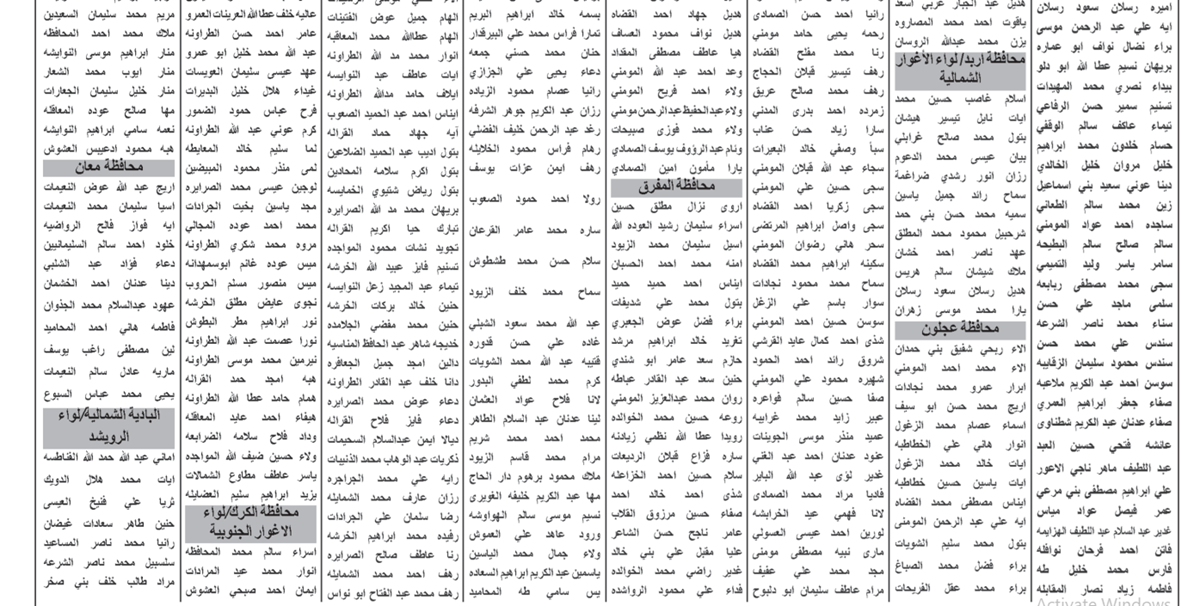 اميره رسلان سعود رسلان
ايه علي عبد الرحمن موسى
براء نضال نواف ابو عماره
بريهان نسيم عطا الله ابو دلو
بيداء نصري محمد المهيدات
تسنيم سمير حسن الرفاعي
تيماء عاكف سالم الوقفي
حسام خلدون محمد ابراهيم
خليل مروان خليل الخالدي
دينا عوني سعيد بني اسماعيل
زين محمد سالم الطعاني
ساجده احمد عواد المومني
سالم صالح سالم البطيحه
سامر ياسر وليد التميمي
سجى محمد مصطفى ربابعه
سلمى ماجد علي حسن
سناء محمد ناصر الشرعه
سندس علي محمد حسن
سندس محمود سليمان الزقايبه
سوسن احمد عبد الكريم ملاعبه
صفاء جعفر ابراهيم العمري
صفاء عدنان عبد الكريم شطناوي
عائشه فتحي حسين العبد
عبد اللطيف ماهر ناجي الاعور
علي ابراهيم مصطفى بني مرعي
عمر فيصل عواد مياس
غدير عبد السلام عبد اللطيف الهزايمه
فاتن احمد فرحان نوافله
فارس محمد خليل طه
فاطمه زياد نصار المقابله
هديل عبد الجبار عربي اسعد
ياقوت احمد محمد المصاروه
يزن محمد عبدالله الروسان
محافظة اربد/ لواء الأغوار
الشمالية
اسلام غاصب حسين محمد
ايات نايل تيسير هيشان
بتول محمد صالح غرايلي
بيان عيسى محمد الدعوم
رزان انور رشدي ضراغمة
سماح رائد جميل ياسين
سميه محمد حسن بني حمد
شرحبيل محمود محمد المطلق
عهد ناصر احمد خشان
ملاك شيشان سالم هريس
هديل رسلان سعود رسلان
يارا محمد موسى زهران
محافظة عجلون
الاء ربحي شفيق بني حمدان
الاء محمد احمد المومني
ابرار عمرو محمد نجادات
اريج محمد حسن ابو سيف
اسماء عصام محمد الزغول
انوار هاني علي الخطاطبه
ايات خالد محمد الزغول
ايات ياسين حسين خطاطبه
ايناس مصطفى محمد القضاه
ايه علي عبد الرحمن المومنى
بتول محمد سليم الشويات
براء فضل محمد الصباغ
براء محمد عقل الفريحات
رانيا احمد حسن الصمادي
رحمه يحيى حامد مومني
رنا محمد مفلح القضاه
رهف تيسير قبلان الحجاج
رهف محمد صالح عريق
زمرده احمد بدري المدني
سارا زياد حسن عناب
سبأ وصفي خالد البعيرات
سجاء عبد الله قبلان المومني
سجى حسين علي المومني
سجى زكريا احمد القضاه
سجى واصل ابراهيم المرتضى
سحر هاني رضوان المومني
سكينه ابراهيم محمد القضاه
سماح محمد محمود نجادات
سوار باسم علي الزغل
سوسن حسين احمد المومني
شذى احمد كمال عايد القرشي
شروق رائد احمد الحمود
شهيره محمود علي المومني
صفا حسين سالم فواعره
عبير زايد محمد غرايبه
عميد منذر موسى الجوينات
عنود عدنان احمد عبد الغني
غدير لؤي عبد الله الباير
فاديا مراد محمد الصمادي
لانا فهمي عيد الخرابشه
لورين احمد عيسى العسولي
ماري نبيه مصطفى مومني
مجد محمد علي عفيف
مرام عاطف سليمان ابو دلبوح
هديل جهاد احمد القضاه
هديل نواف محمود العساف
هيا عاطف مصطفى المقداد
وعد احمد عبد الله المومني
ولاء احمد فريح المومني
ولاء عبدالحفيظ عبدالرحمن مومني
ولاء محمد فوزي صبيحات
ونام عبد الرؤوف يوسف الصمادي
يارا مأمون امين الصمادي
محافظة المفرق
اروى نزال مطلق حسين
اسراء سليمان رشيد العوده الله
اسيل سليمان محمد الزيود
امنه محمد احمد الحسبان
ايناس احمد حميد حميد
بتول محمد علي شديفات
براء فضل عوض الجعبري
تغريد خالد ابراهيم مرشد
حازم سعد عامر ابو شندي
حنين سعد عبد القادر عباطه
روان محمد عبدالعزيز المومني
روعه حسين محمد الخوالده
رويدا عطا الله نظمي زيادنه
ساره فزاع قبلان الرديعات
سلام حسين احمد الخزاعله
شذى احمد خالد احمد
صفاء حسين مرزوق القلاب
عامر ناجح حسن الشاعر
عليا مقبل علي بني خالد
غدير راضي محمد الخوالده
فداء محمود علي الرواشده
بسمه خالد ابراهيم البريم
تمارا فراس محمد علي البيرقدار
حنان محمد حسني جمعه
دعاء يحيى علي الجزازي
رانيا عصام محمود الزياده
رزان عبد الكريم جوهر الشرفه
رغد عبد الرحمن خليف الفضلي
رهام فراس محمود الخلايله
رهف ايمن عزات يوسف
رولا احمد حمود الصعوب
ساره محمد عامر القرعان
سلام حسن محمد طشطوش
سماح محمد خلف الزيود
عبد الله محمد سعود الشبلي
غاده علي حسن قدوره
قتيبه عبد الله محمد الشويات
كرم محمد لطفي البدور
لانا فلاح عواد العثمان
لينا عدنان عبد السلام الطاهر
محمد احمد محمد شريم
مرام محمد قاسم الزيود
ملاك محمود برهوم دار الحاج
مها عبد الكريم خليفه الغويري
نسيم موسى سالم الهواوشه
ورود عاهد علي العموش
ولاء جمال محمد الياسين
ياسمين عبد الكريم ابراهيم السعاده
يس سامي طه المحاميد
الهام جميل عوض الفتينات
الهام عطاالله محمد المعاقبه
انوار محمد مد الله الطراونه
ايات عاطف عبد النوايسه
ايلاف حامد مدالله الطراونه
ايناس احمد عبد الحميد الصعوب
آيه جهاد حماد القراله
بتول اديب عبد الحميد الضلاعين
بتول اكرم سلامه المحادين
بتول رياض شتيوي الخمايسه
بريهان محمد مد الله الصرايره
تبارك حيا اكريم القراله
تجويد نشات محمود المواجده
تسنيم فايز عبيد الله الخرشه
تيماء عبد المجيد زعل النوايسه
حنين خالد بركات الخرشه
حنين محمد مفضي الجلامده
خديجه شاهر عبد الحافظ المناسيه
دالين امجد جميل الجعافره
دانا خلف عبد القادر الطراونه
دعاء احمد محمد الطراونه
دعاء فايز فلاح القراله
ديالا ايمن عبدالسلام السحيمات
ذكريات عبد الوهاب محمد الذنيبات
رايه علي محمد الجراجره
رزان عارف محمد الشمايله
رضا سلمان علي الجرادات
رفيده محمد ابراهيم الخرشه
رنا عاطف صالح الصرايره
رهف احمد محمد الشمايله
رهف محمد عبد الفتاح ابو نواس
عاليه خلف عطا الله العرينات العمرو
عامر احمد حسن الطراونه
عبد الله محمد خليل ابو عمرو
عهد عيسى سليمان العويسات
غيداء هلال خليل البديرات
فرح عباس حمود الضمور
كرم عوني عبد الله الطراونه
لما سليم خالد المعايطه
لمى منذر محمود المبيضين
لوجين عيسى محمد الصرايره
مجد ياسين بخيت الجرادات
محمد احمد عوده المجالي
مروه محمد شكري الطراونه
ميس عوده غانم ابوسمهدانه
ميس منصور مسلم الحروب
نجوى عايض مطلق الخرشه
نور ابراهيم مطر البطوش
نورا عصمت عبد الله الطراونه
نيرمين محمد موسى الطراونه
هبه امجد حمد القراله
همام حامد عطا الله الطراونه
هيفاء احمد عايد المعاقله
وداد فلاح سلامه الضرابعه
ولاء حسين ضيف الله المواجده
ياسر عاطف مطاوع الشمالات
يزيد ابراهيم سليم العضايله
محافظة الكرك/لواء
الاغوار الجنوبية
اسراء سالم محمد المحافظه
انوار محمد عيد المرادات
ايمان احمد صبحي العشوش
مريم محمد سليمان السعيدين
ملاك محمد احمد المحافظه
منار ابراهيم موسى النوايشه
منار ايوب محمد الشعار
منار خليل سليمان الجعارات
مها صالح عوده المعاقله
نعمه سامي ابراهيم النوايشه
هبه محمود ادعييس العشوش
محافظة معان
اريج عبد الله عوض النعيمات
اسيا سليمان محمد النعيمات
ايه فواز فالح الرواضيه
خلود احمد سالم السليمانيين
دعاء فؤاد عبد الشلبي
دينا عدنان احمد الخشمان
عهود عبدالسلام محمد الجذوان
فاطمه هاني احمد المحاميد
لين مصطفى راغب يوسف
ماريه عادل سالم النعيمات
يحيى محمد عباس السبوع
البادية الشمالية/لواء
الرويشد
اماني عبد الله حمد الله القناطسه
ايات محمد هلال الدويك
ثريا علي فنيخ العيسى
حنين طاهر سعادات غيضان
رانيا محمد ناصر المساعيد
سلسبيل محمد ناصر الشرعه
مراد طالب خلف بني صخر
Activate Windows